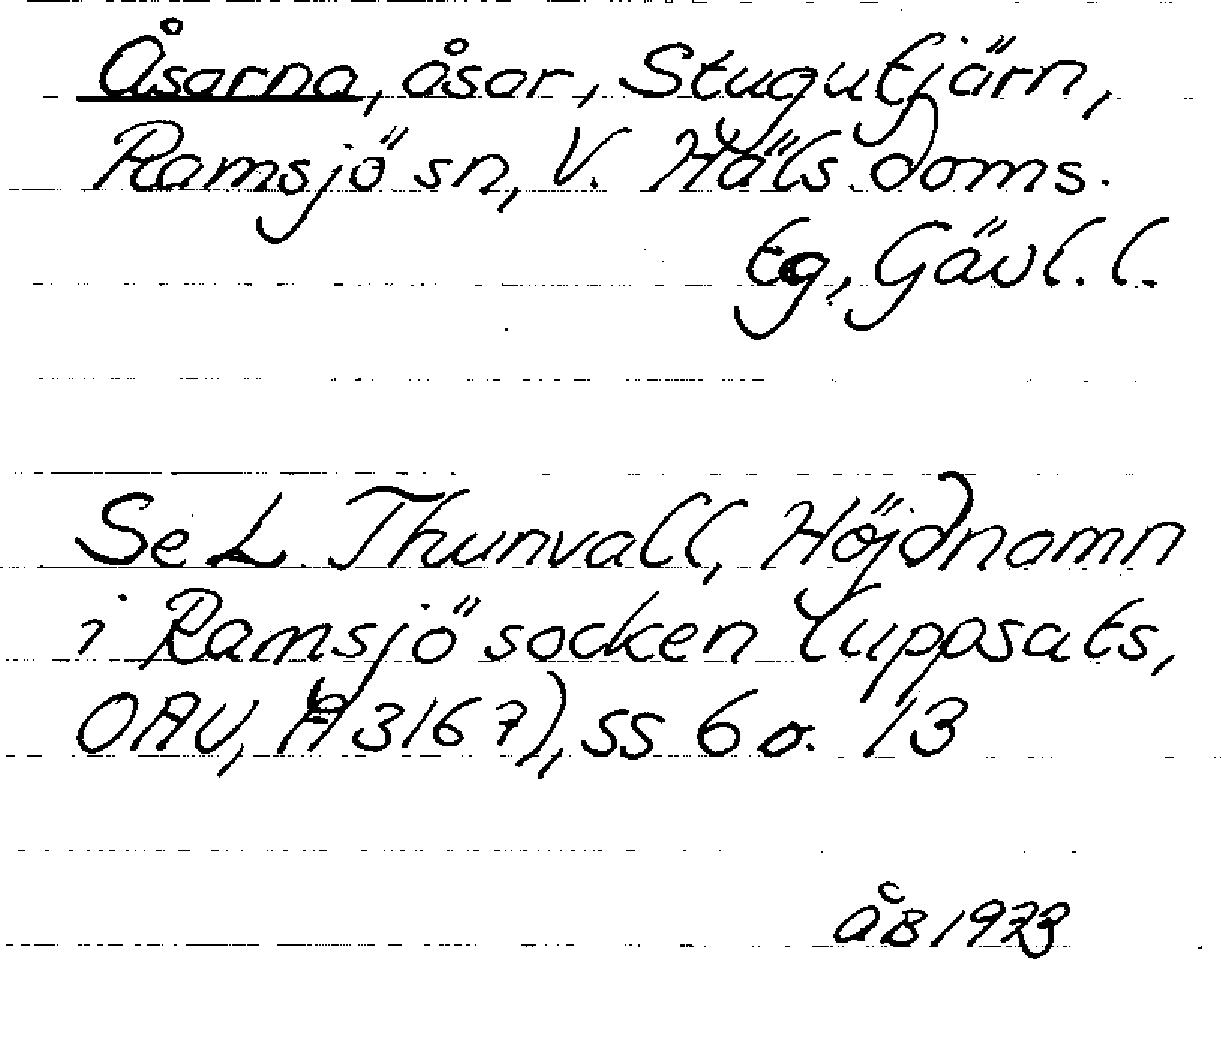 Åsarna, åsar, Stugutjärn,
Ramsjö sn, V. Häls. doms.
tg, Gävl. l.
Se L. Thunvall, Höjdnamn
i Ramsjö socken (uppsats,
OAU, A 3167), ss 6 o. 13
ÅB 1973